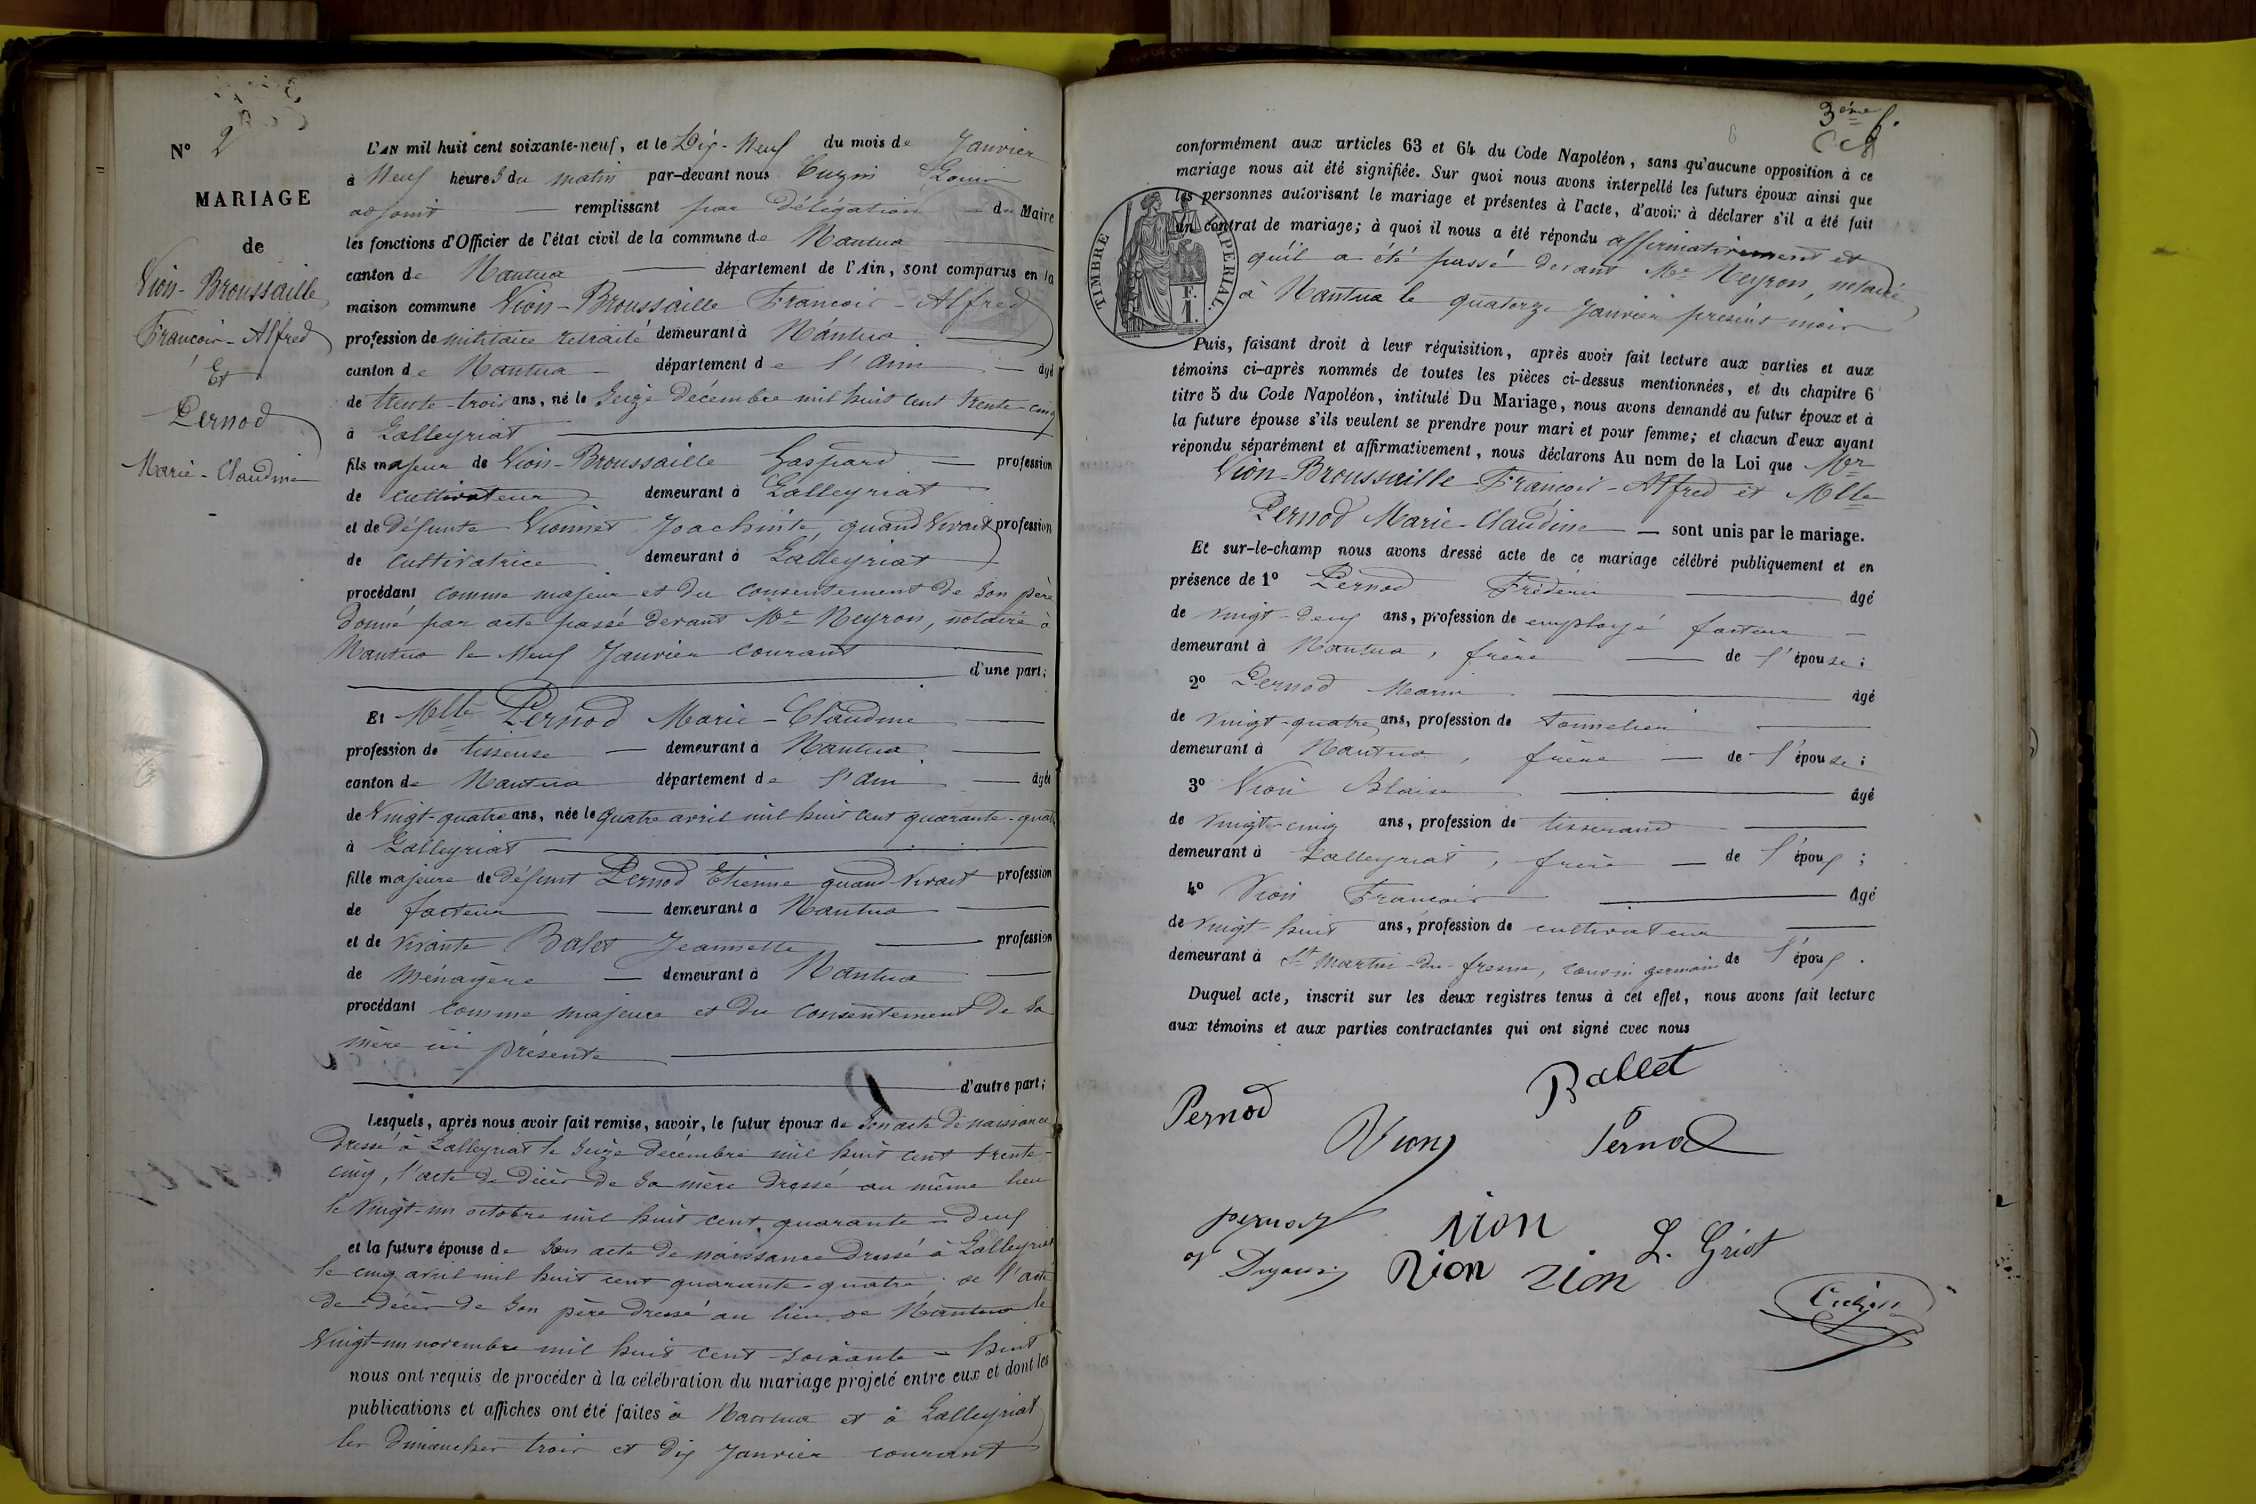 N° 2
MARIAGE
de
Vion-Broussaille
François-Alfred
Et
Pernod
Marie-Claudine
L'AN mil huit cent soixante-neuf, et le Dix-Neuf du mois de Janvier
à Neuf heures du matin par-devant nous
adjoint remplissant par délégation du Maire
les fonctions d'Officier de l'état civil de la commune de Nantua
canton de Nantua département de l'Ain, sont comparus en la
maison commune Vion-Broussaille François-Alfred
profession de militaire retraité demeurant à Nantua
canton de Nantua département de l'Ain âgé
de trente-trois ans, né le seize décembre mil huit cent trente-cinq
à Lalleyriat
fils majeur de Vion-Broussaille Gaspard profession
de cultivateur demeurant à Lalleyriat
et de défunte Vionnet Joachinte, quand vivait profession
de cultivatrice demeurant à Lalleyriat
procédant comme majeur et du consentement de son père
donné par acte passé devant Me Neyron, notaire à
Nantua le Neuf Janvier courant
d'une part;
Et Mlle Pernod Marie-Claudine
profession de tisseuse demeurant à Nantua
canton de Nantua département de l'Ain âgée
de Vingt-quatre ans, née le quatre avril mil huit cent quarante-quatre
à Lalleyriat
fille majeure de défunt Pernod Etienne quand vivait profession
de facteur demeurant à Nantua
et de vivante Balet Jeannette profession
de ménagère demeurant à Nantua
procédant comme majeure et du consentement de sa
mère ici présente
d'autre part;
Lesquels, après nous avoir fait remise, savoir, le futur époux de son acte de naissance
dressé à Lalleyriat le seize décembre mil huit cent trente-
cinq, l'acte de décès de sa mère dressé au même lieu
le vingt-un octobre mil huit cent quarante-deux
et la future épouse de son acte de naissance dressé à Lalleyriat
le cinq avril mil huit cent quarante-quatre; de l'acte
de décès de son père dressé au lieu de Nantua le
Vingt-un novembre mil huit cent soixante-huit
nous ont requis de procéder à la célébration du mariage projeté entre eux et dont les
publications et affiches ont été faites à Nantua et à Lalleyriat
les dimanches trois et dix Janvier courant
3ème f.
conformément aux articles 63 et 64 du Code Napoléon, sans qu'aucune opposition à ce
mariage nous ait été signifiée. Sur quoi nous avons interpellé les futurs époux ainsi que
les personnes autorisant le mariage et présentes à l'acte, d'avoir à déclarer s'il a été fait
un contrat de mariage; à quoi il nous a été répondu affirmativement et
qu'il a été passé devant Me Neyron, notaire
à Nantua le quatorze Janvier présent mois
TIMBRE IMPERIAL.
1 F.
Puis, faisant droit à leur réquisition, après avoir fait lecture aux parties et aux
témoins ci-après nommés de toutes les pièces ci-dessus mentionnées, et du chapitre 6
titre 5 du Code Napoléon, intitulé Du Mariage, nous avons demandé au futur époux et à
la future épouse s'ils veulent se prendre pour mari et pour femme; et chacun d'eux ayant
répondu séparément et affirmativement, nous déclarons Au nom de la Loi que Mr
Vion-Broussaille François-Alfred et Mlle
Pernod Marie-Claudine sont unis par le mariage.
Et sur-le-champ nous avons dressé acte de ce mariage célébré publiquement et en
présence de 1° Pernod Frédéric âgé
de vingt-deux ans, profession de employé facteur
demeurant à Nantua, frère de l'épouse;
2° Pernod Marin âgé
de vingt-quatre ans, profession de tonnelier
demeurant à Nantua, frère de l'épouse;
3° Vion Blaise âgé
de vingt-cinq ans, profession de tisserand
demeurant à Lalleyriat, frère de l'époux;
4° Vion François âgé
de vingt-huit ans, profession de cultivateur
demeurant à St Martin-du-fresne, cousin germain de l'époux.
Duquel acte, inscrit sur les deux registres tenus à cet effet, nous avons fait lecture
aux témoins et aux parties contractantes qui ont signé avec nous
Ballet
Pernod
Vion
Pernod
Vion
L. Griot
Vion Vion